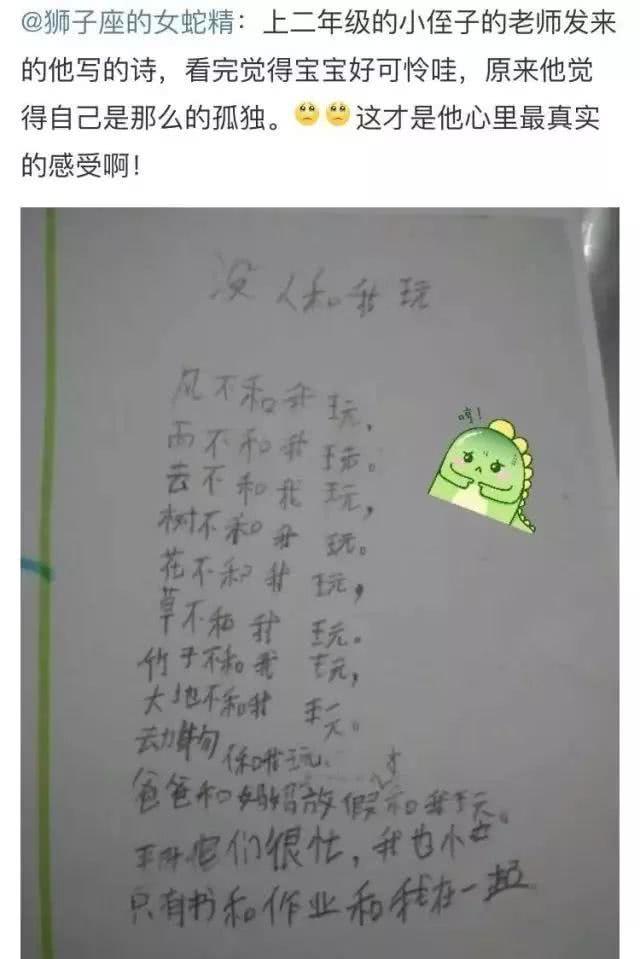 @狮子座的女蛇精：上二年级的小侄子的老师发来
的他写的诗，看完觉得宝宝好可怜哇，原来他觉
得自己是那么的孤独。🙁🙁这才是他心里最真实
的感受啊！
没人和我玩
风不和我玩，
哼！
雨不和我玩。
云不和我玩，
树不和我玩。
花不和我玩，
草不和我玩。
竹子不和我玩，
大地不和我玩。
动物 和我玩、
爸爸和妈妈放假才和我玩。
平时它们很忙，我也忙
只有书和作业和我在一起